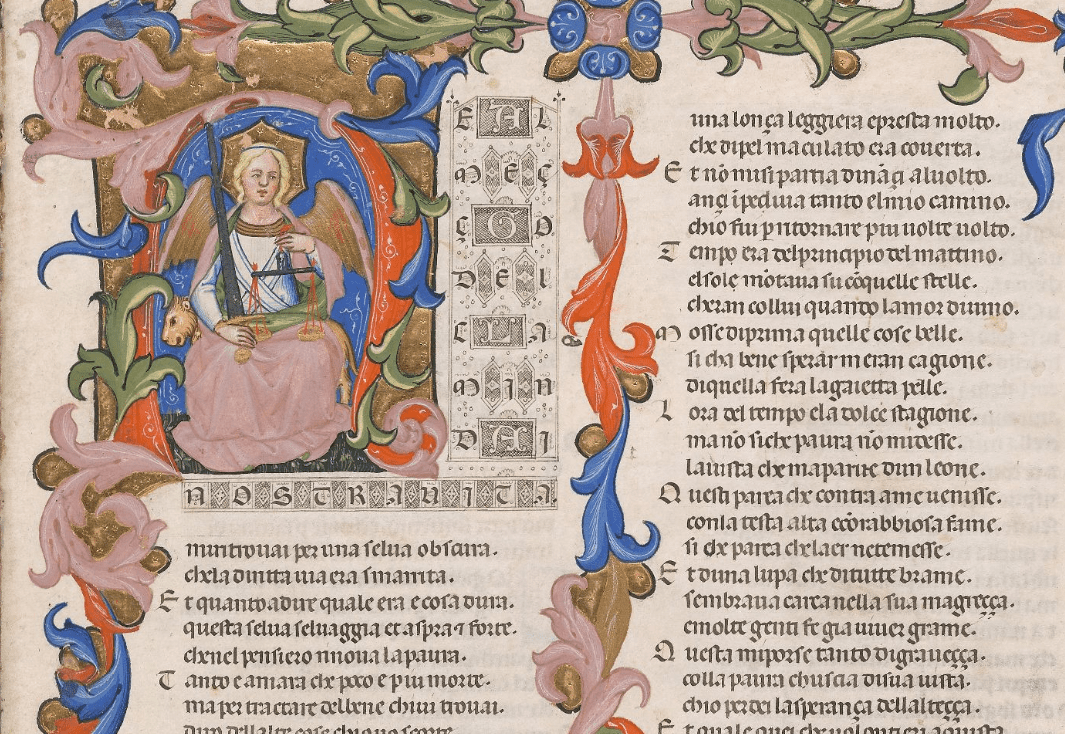 E A L
M E Ç
Ç G O
D E L
M I N
D A I
N O S T R A U I T A.
mi ritrouai per una selua obscura.
chela diritta uia era smarrita.
Et quanto adire quale era e cosa dura.
questa selua seluaggia et aspra ⁊ forte.
chenel pensiero rinoua la paura.
Tanto e amara che poco e piu morte.
ma per tractare delbene chiui trouai.
diro dellaltre cose chio uo scorte.
una lonça leggiera epresta molto.
che dipel maculato era couerta.
Et nō misi partia dināçi aluolto.
ançi īpediua tanto elmio camino.
chio fui p ritornare piu uolte uolto.
Tempo era delprincipio del mattino.
elsole mōtaua su cōquelle stelle.
cheran collui quando lamor diuino.
Mosse diprima quelle cose belle.
si cha bene sperar meran cagione.
diquella fera lagaietta pelle.
Lora del tempo ela dolce stagione.
ma nō siche paura nō midesse.
lauista che maparue dun leone.
Questi parea che contra ame uenisse.
conla testa alta ecō rabbiosa fame.
si che parea chelaer netemesse.
Et duna lupa che ditutte brame.
sembraua carca nella sua magreçça.
emolte genti fe gia uiuer grame.
Questa miporse tanto digraueçça.
colla paura chuscia disua uista.
chio perdei lasperança dellalteçça.
Et quale quei che uolontieri aquista